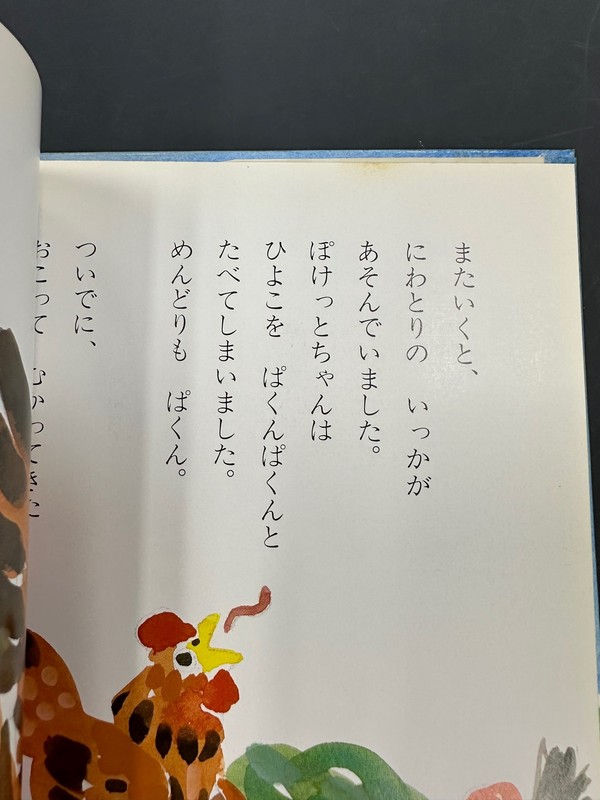 またいくと、
にわとりの　いっかが
あそんでいました。
ぽけっとちゃんは
ひよこを　ぱくんぱくんと
たべてしまいました。
めんどりも　ぱくん。
ついでに、
おこって　むかってきた